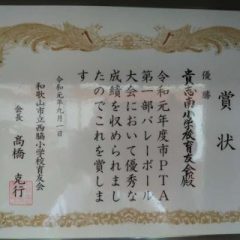 賞状
優勝
貴志南小学校育友会殿
令和元年度市PTA
第一部バレーボール
大会において優秀な
成績を収められまし
たのでこれを賞しま
す
令和元年九月一日
和歌山市立西脇小学校育友会
会長 高橋克行